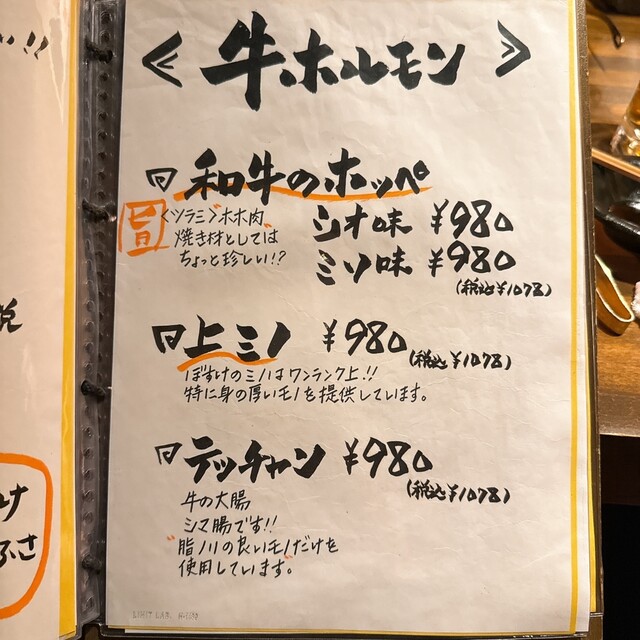 !!
＜牛ホルモン＞
和牛のホッペ
旨
<ツラミ>ホホ肉
"焼き材としては"
ちょっと珍しい!?
シオ味 ¥980
ミソ味 ¥980
(税込¥1078)
上ミノ ¥980
(税込¥1078)
ぼすけのミノはワンランク上!!
特に身の厚いモノを提供しています。
テッチャン ¥980
(税込¥1078)
牛の大腸
シマ腸です!!
"脂ノリの良いモノだけを
使用しています"。